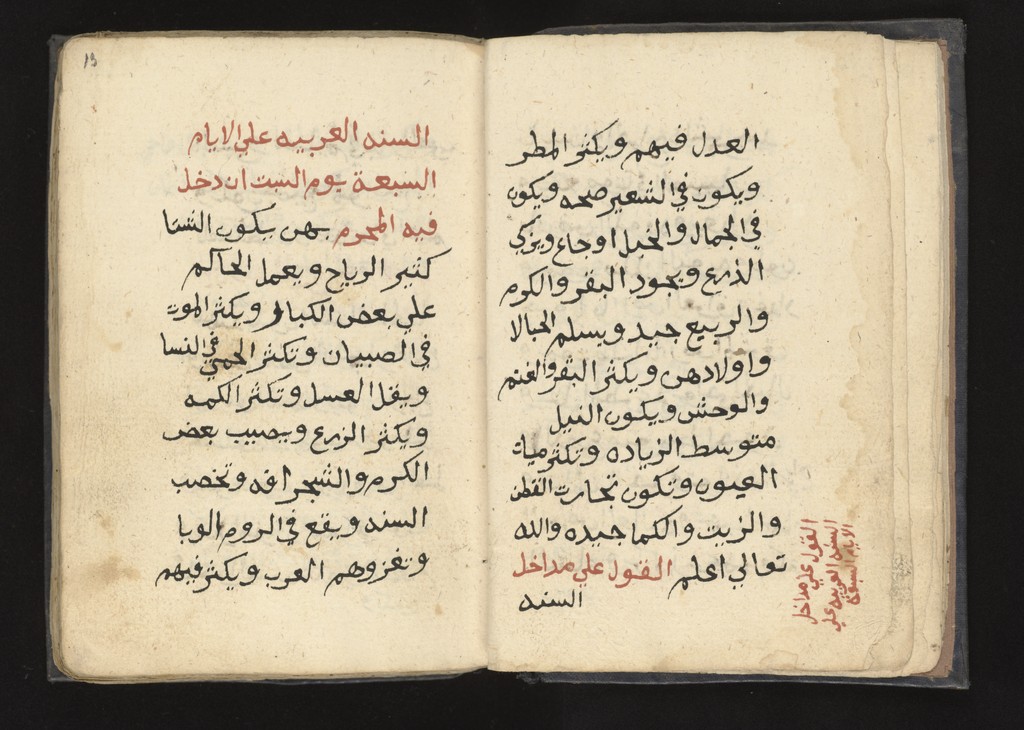 العدل فيهم ويكثر المطر
ويكون في الشعير صحه ويكون
في الجمال والخيل اوجاع ويزكي
الذرع ويجود البقر والكرم
والربيع جيد ويسلم الحبالا
واولادهن ويكثر البقر والغنم
والوحش ويكون النيل
متوسط الزياده وتكثر مياه
العيون وتكون تجارت القطن
والزيت والكما جيده والله
تعالي اعلم القول علي مداخل
السنه
القول علي مداخل
السنه العربيه علي
الايام السبعة
13
السنه العربيه علي الايام
السبعة يوم السبت ان دخل
فيه المحرم يكون الشتا
كثير الرياح ويعمل الحاكم
علي بعض الكبار ويكثر الموت
في الصبيان وتكثر الحمي في النسا
ويقل العسل وتكثر الكمه
ويكثر الزرع ويصيب بعض
الكرم والشجر افه وتخصب
السنه ويقع في الروم الوبا
وتغزوهم العرب ويكثر فيهم